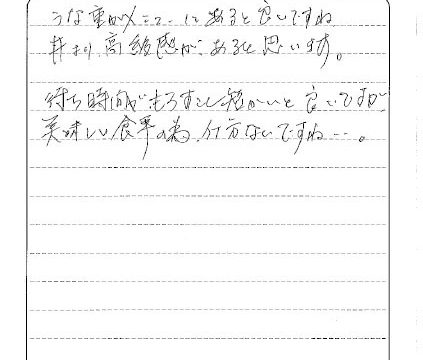 うな重がメニューにあると良いですね
丼より高級感があると思います。
待ち時間がもう少し短かいと良いですが
美味しい食事の為、仕方ないですね…。